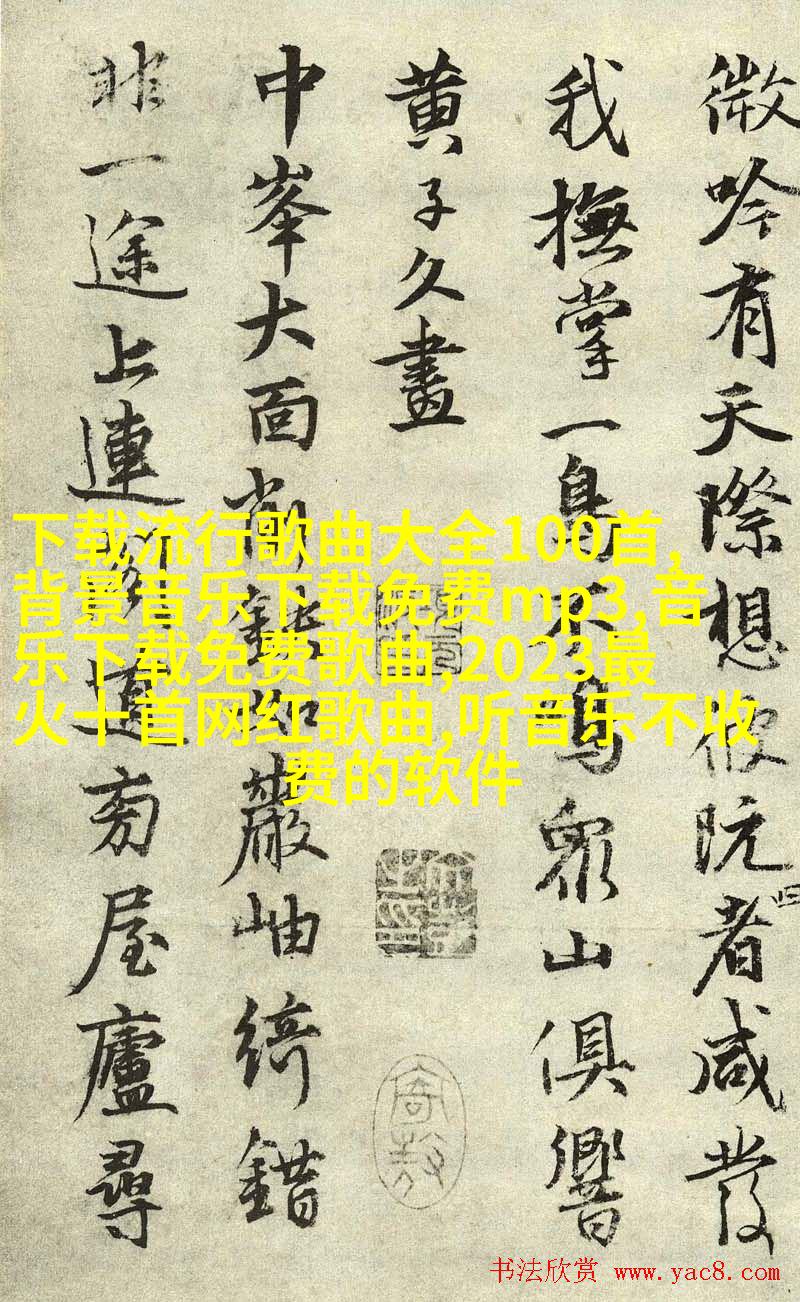 微吟有天際想彼阮者咸發
我撫掌一鳥不鳴眾山俱響
黄子久畫
中峯大面如嚴岫綺錯
非一途上連道旁屋廬尋
下载流行歌曲大全100首,
背景音乐下载免费mp3,音
乐下载免费歌曲,2023最
火十首网红歌曲,听音乐不收
费的软件
书法欣赏 www.yac8.com